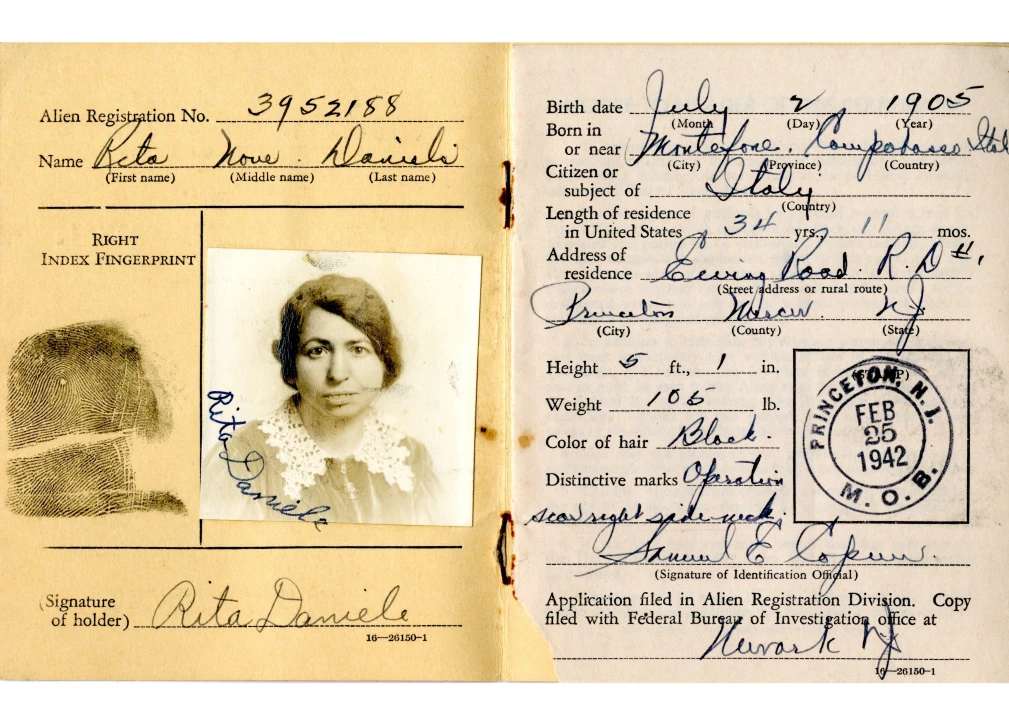 Alien Registration No. 3952188
Name Rita None. Daniele
(First name) (Middle name) (Last name)
RIGHT
INDEX FINGERPRINT
Rita Daniele
(Signature
of holder) Rita Daniele
16—26150-1
Birth date July 2 1905
(Month) (Day) (Year)
Born in
or near Montefone. Campobasso Ital
(City) (Province) (Country)
Citizen or
subject of Italy
(Country)
Length of residence
in United States 34 yrs. 11 mos.
Address of
residence Ewing Road. R. D #1,
(Street address or rural route)
Princeton Mercer. NJ
(City) (County) (State)
Height 5 ft., 1 in.
Weight 105 lb.
Color of hair Black.
Distinctive marks Operation
scar right side neck.
PRINCETON, N.J.
FEB
25
1942
M. O. B.
Samuel E
(Signature of Identification Official)
Application filed in Alien Registration Division. Copy
filed with Federal Bureau of Investigation office at
Newark NJ
16—26150-1